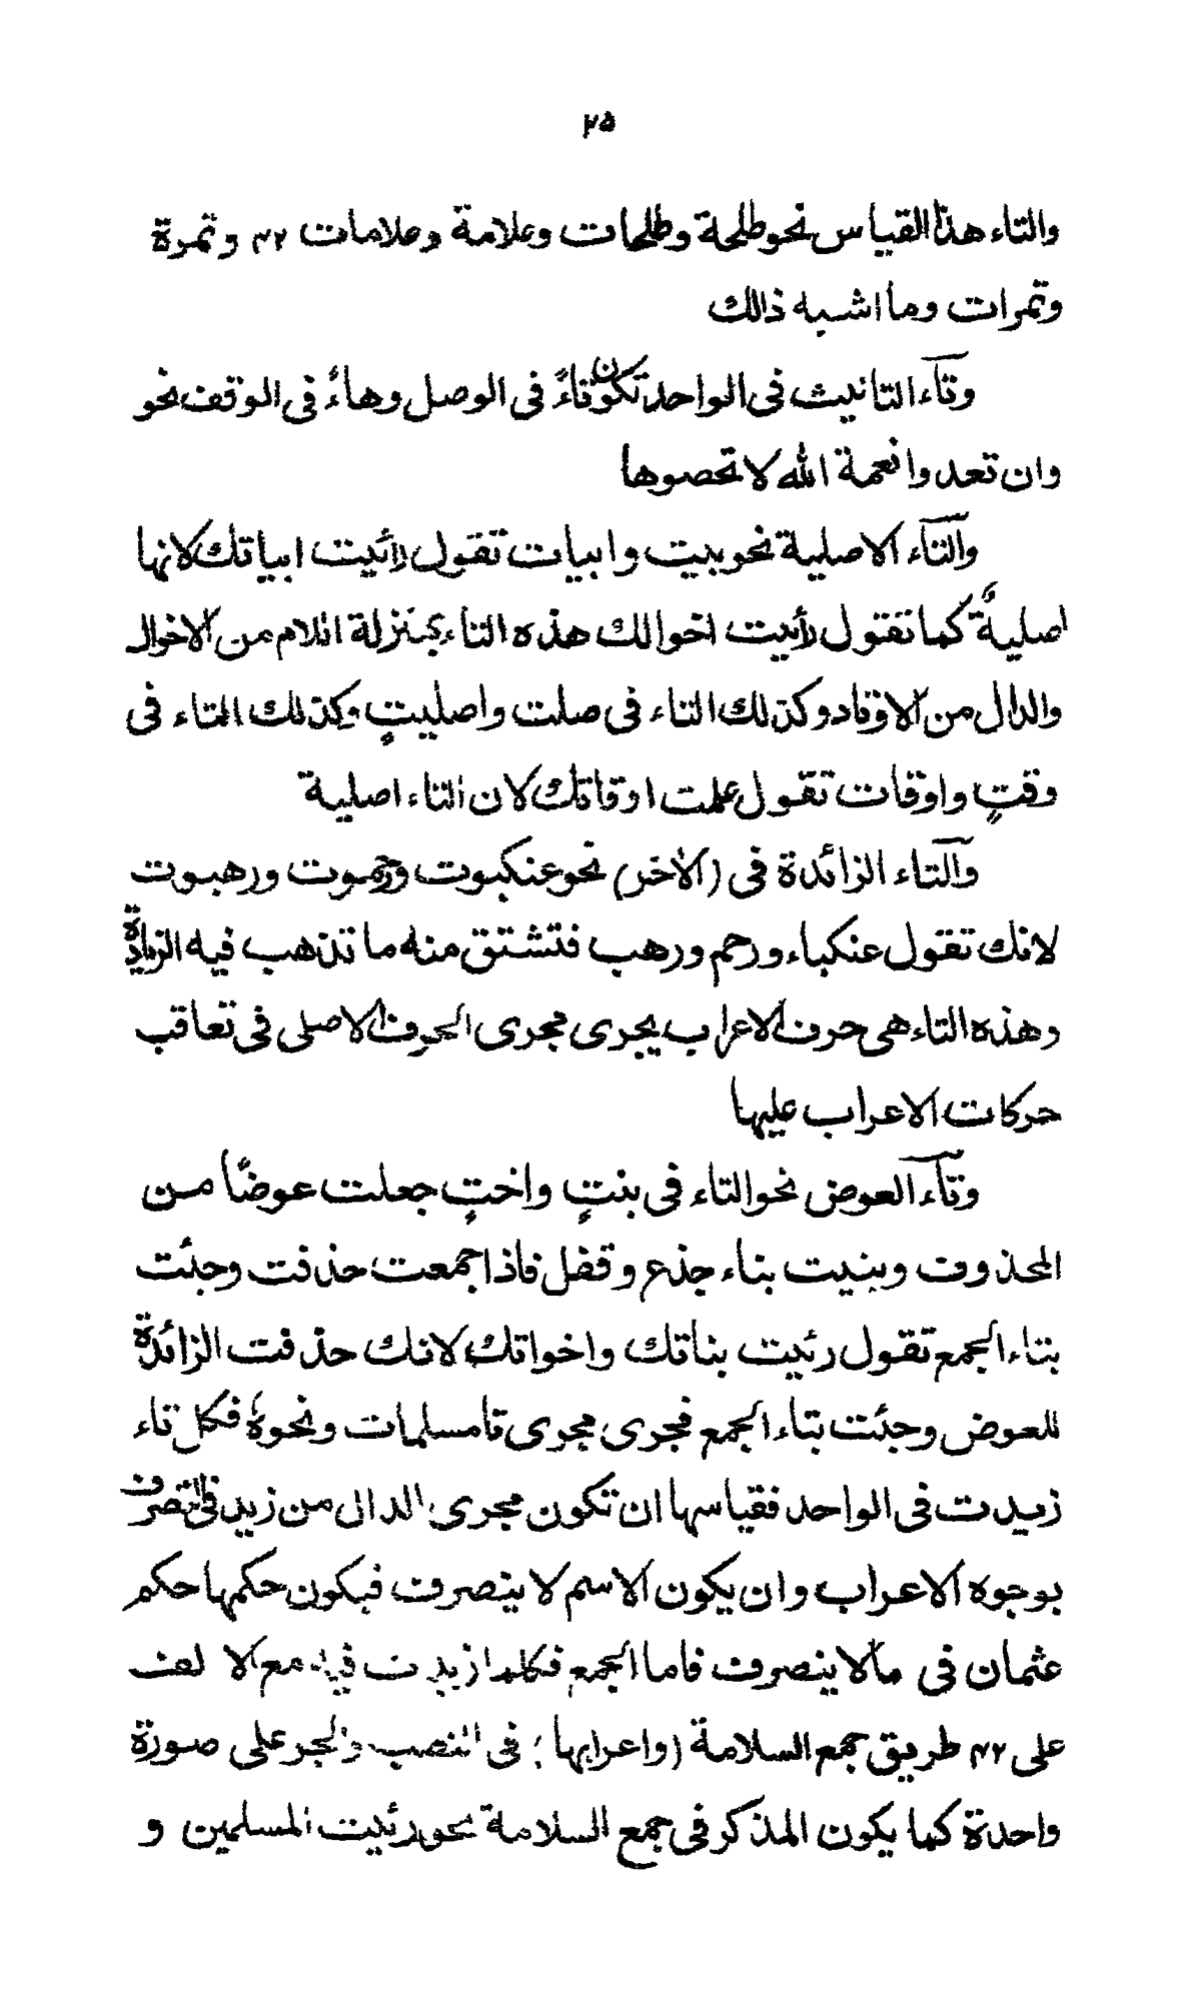 ٢٥
والتاء هذا القياس نحو طلحة وطلحات وعلامة وعلامات ٤٢ وتمرة
وتمرات وما اشبه ذالك
وتآء التانيث فى الواحد تكون تاءً فى الوصل وهاءً فى الوقف نحو
وان تعدوا نعمة الله لا تحصوها
والتآء الاصلية نحو بيت وابيات تقول رأيت ابياتك لانها
اصليةٌ كما تقول رأيت اخوالك هذه التاء بمنزلة اللام من الاخوال
والدال من الاوقاد وكذلك التاء فى صلت واصليتٍ وكذلك التاء فى
وقتٍ واوقات تقول علمت اوقاتك لان التاء اصلية
والتآء الزائدة فى (الأخر) نحو عنكبوت ورحموت ورهبوت
لانك تقول عنكباء ورحم ورهب فتشتق منه ما تذهب فيه الزيادة
وهذه التاء هى حرف الاعراب يجرى مجرى الحرف الاصلى فى تعاقب
حركات الاعراب عليها
وتآء العوض نحو التاء فى بنتٍ واختٍ جعلت عوضًا من
المحذوف وبنيت بناء جذع وقفل فاذا جمعت حذفت وجئت
بتاء الجمع تقول رئيت بناتك واخواتك لانك حذفت الزائدة
للعوض وجئت بتاء الجمع فجرى مجرى تا مسلمات ونحوهٔ فكل تاء
زيدت فى الواحد فقياسها ان تكون مجرى الدال من زيد فى التصرف
بوجوه الاعراب وان يكون الاسم لا ينصرف فيكون حكمها حكم
عثمان فى مالا ينصرف فاما الجمع فكلما زيدت فيه مع الا لف
على ٤٢ طريق جمع السلامة (واعرابها) فى النصب والجر على صورة
واحدة كما يكون المذكر فى جمع السلامة نحو رئيت المسلمين و